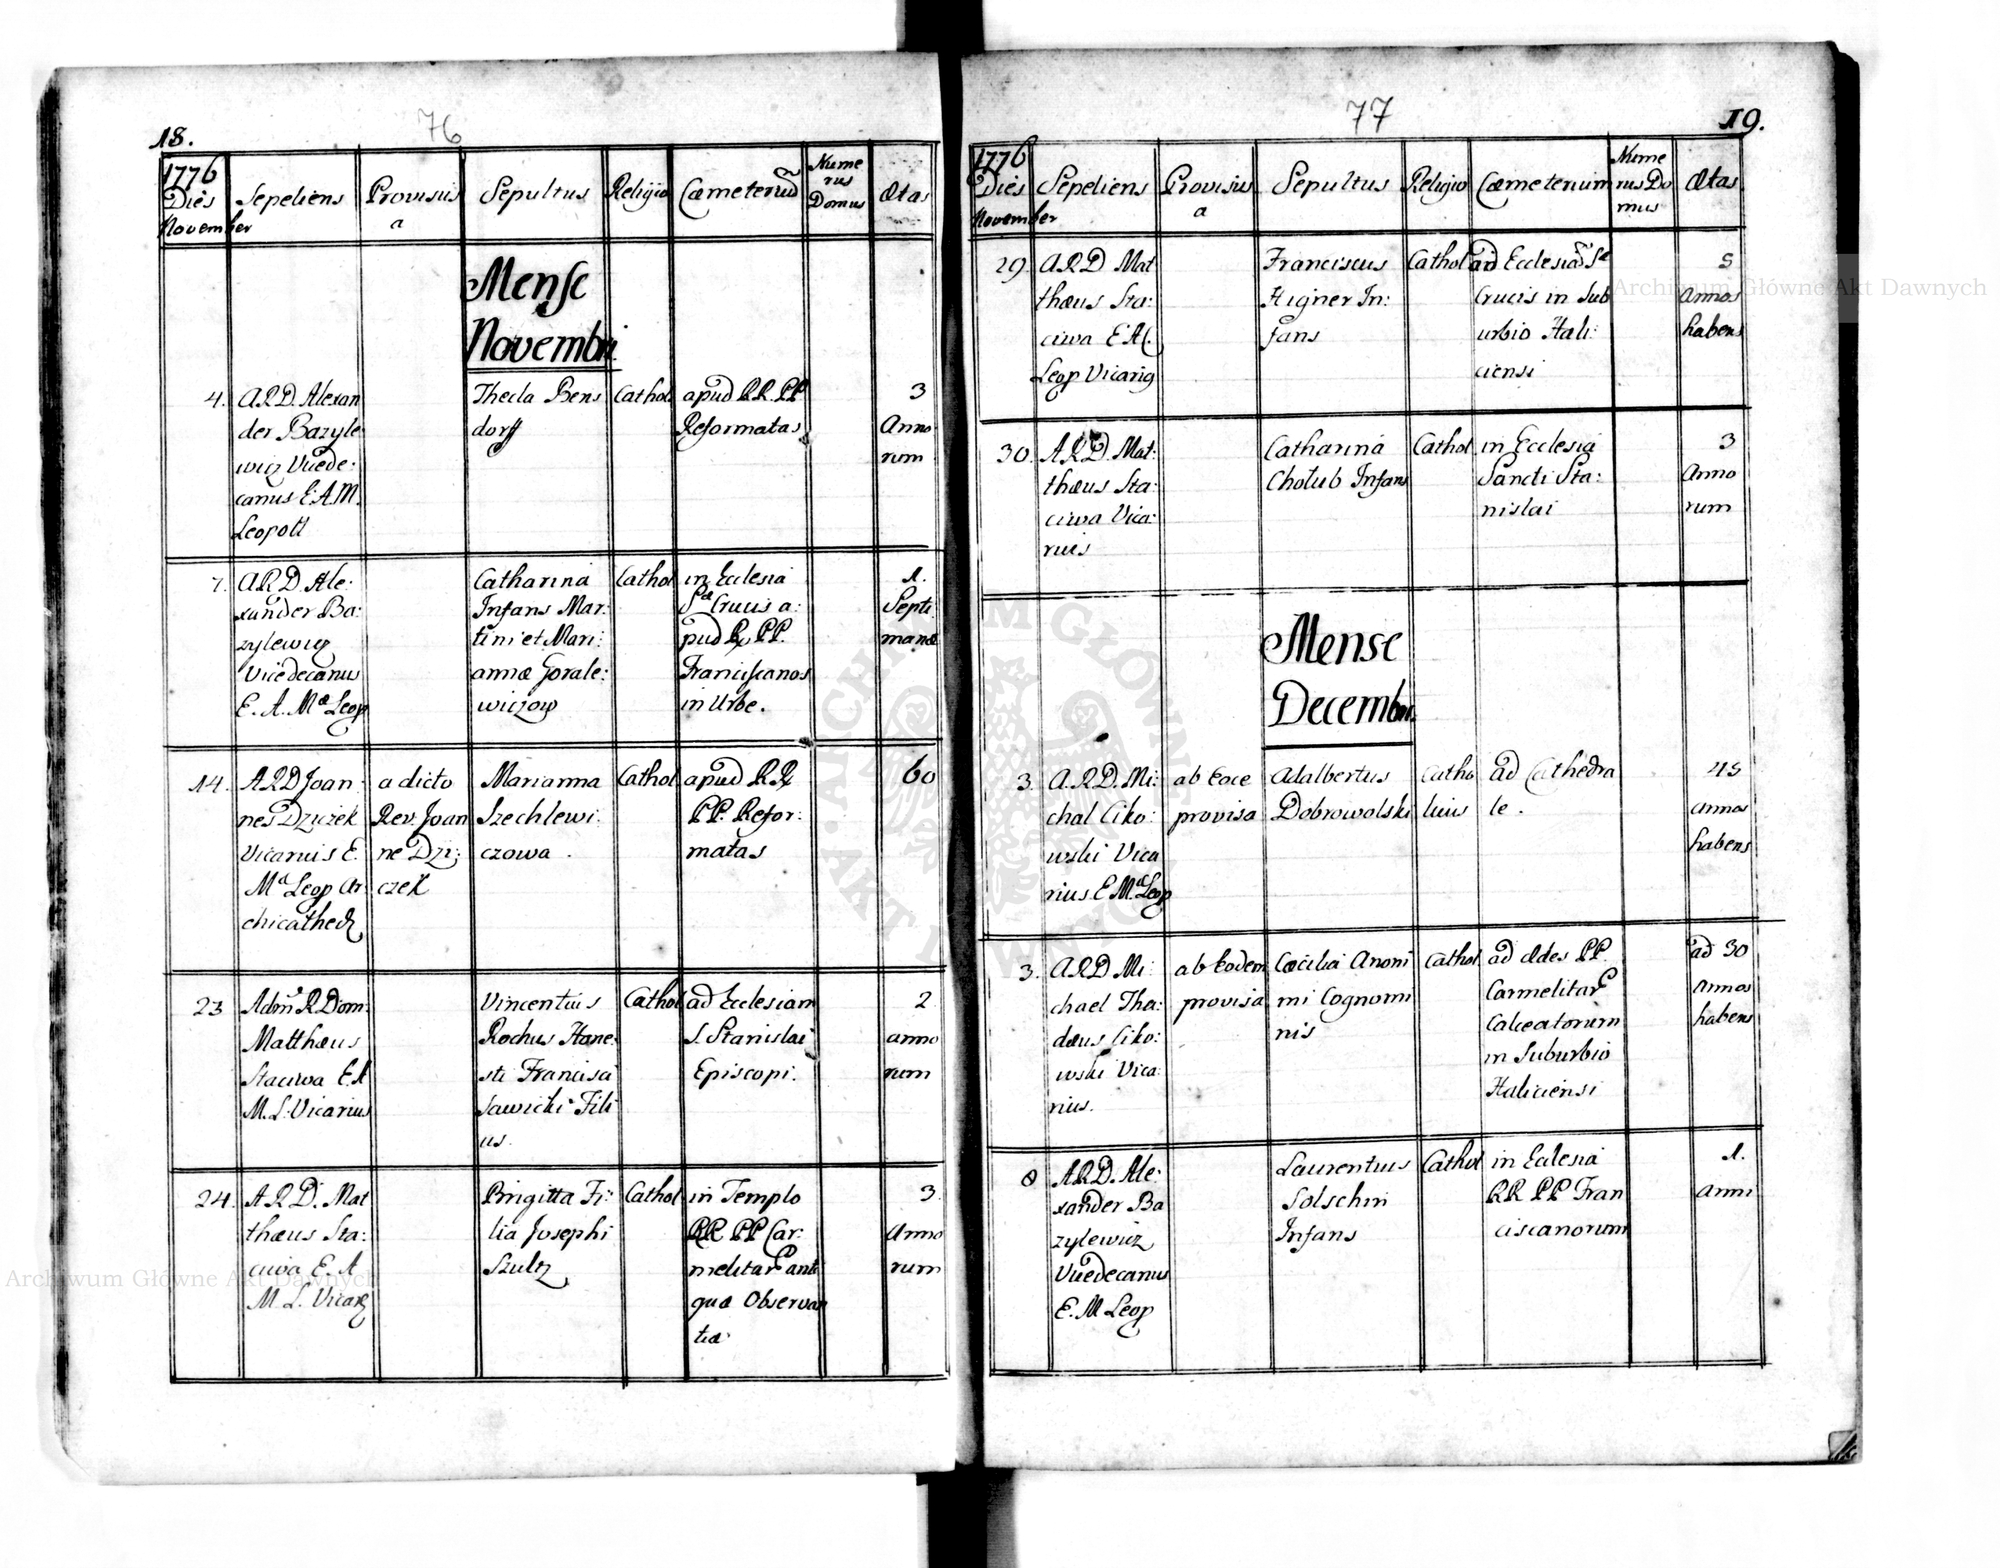 18.
76
1776
Dies
November
Sepeliens
Provisus
a
Sepultus
Religio
Cæmeteriū
Nume
rus
Domus
Ætas
Mense
Novembri
4.
A.R.D. Alexan
der Bazyle
wicz Vicede:
canus E.A.M.
Leopoll
Thecla Bens
dorff
Cathol
apud RR. PP
Reformatas
3
Anno
rum
7.
A.R.D. Ale:
xander Ba:
zylewicz
Vicedecanus
E. A. Mæ Leop
Catharina
Infans Mar:
tini et Mari:
annæ Gorale:
wiczow
Cathol
in Ecclesia
Sæ Crucis a:
pud RR PP.
Franciscanos
in Urbe.
1.
Septi
manæ
14.
A.R.D Joan:
nes Dziczek
Vicarius E.
Mæ Leop Ar
chicathed
a dicto
Rev. Joan
ne Dzi:
czek
Marianna
Szechlewi:
czowa.
Cathol
apud RR
PP. Refor:
matas
60
23
Adm R Dom:
Matthæus
Staciwa E.A
M. L. Vicarius
Vincentius
Rochus Hone
sti Francisci
Sawicki Fili
us.
Cathol
ad Ecclesiam
S. Stanislai
Episcopi.
2.
anno
rum
24.
A R D. Mat
thæus Sta:
ciwa E. A
M. L. Vicarg
Brigitta Fi:
lia Josephi
Szultz
Cathol
in Templo
RR PP Car:
melitar anti
quæ Observan
tiæ
3.
Anno
rum
77
19.
1776
Dies
November
Sepeliens
Provisus
a
Sepultus
Religio
Cæmeterium
Nume
rus Do
mus
Ætas
29.
A.R.D Mat
thæus Sta:
ciwa E.A.
Leop Vicarig
Franciscus
Higner In:
fans
Cathol
ad Ecclesiā Sæ
Crucis in Sub
urbio Hali:
ciensi
5
annos
habens
30.
A.R.D. Mat:
thæus Sta:
ciwa Vica:
rius
Catharina
Cholub Infans
Cathol
in Ecclesia
Sancti Sta:
nislai
3
Anno
rum
Mense
Decembri
3.
A.R.D. Mi:
chal Ciko:
wski Vica
rius E Mæ Leop
ab eoce
provisa
Adalbertus
Dobrowolski
Catho
licus
ad Cathedra
le.
45
annos
habens
3.
A.R.D Mi:
chael Tha:
dæus Ciko:
wski Vica:
rius.
ab Eodem
provisa
Cæcilia Anoni
mi Cognomi
nis
Cathol
ad Ædes PP.
Carmelitar
Calceatorum
in Suburbio
Haliciensi
ad 30
annos
habens
8
A.R.D. Ale:
xander Ba
zylewicz
Vicedecanus
E. M Leop
Laurentius
Solschin
Infans
Cathol
in Ecclesia
RR PP Fran
ciscanorum
1.
anni
Archiwum Główne Akt Dawnych
Archiwum Główne Akt Dawnych
ARCHIWUM GŁÓWNE AKT DAWNYCH